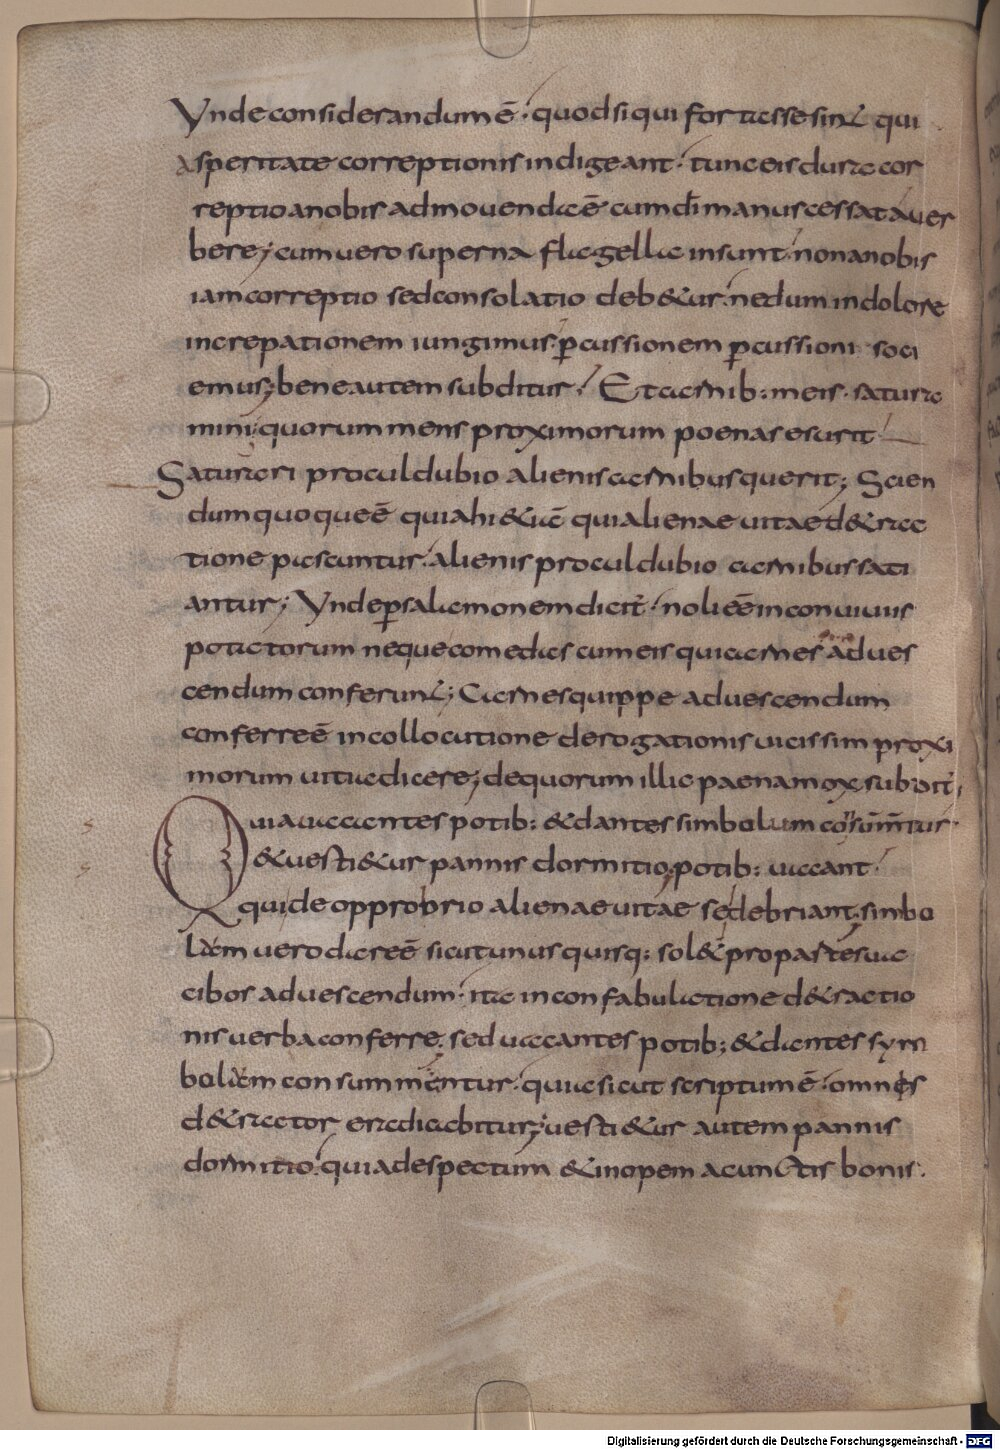 Vnde considerandum ē· quod si qui fortasse sint qui
asperitate correptionis indigeant· tunc eis dura cor
reptio a nobis admouenda ē cum dī manus cessat a uer
bere; cum uero superna flagella insunt· non a nobis
iam correptio sed consolatio deb&ur· ne dum in dolore
increpationem iungimus ꝑcussionem ꝑcussioni soci
emus; bene autem subditur· Et carnib: meis satura
mini· quorum mens proximorum poenas esurit
Saturari procul dubio alienis carnibus querit; Scien
dum quoque ē quia hi &iā qui alienae uitae d&rac
tione pascuntur· alienis procul dubio carnibus sati
antur; Vnde ꝑ salamonem dicit̄· noli eē in conuiuiis
potatorum neque comedas cum eis qui carnes ad ues
cendum conferunt; Carnes quippe ad uescendum
conferre ē in collocutione derogationis uicissim proxi
morum uitia dicere; de quorum illic paena mox subdit̄;
Quia uacantes potib: & dantes simbolum cosumm̄tur
& uesti&ur pannis dormitio; potib: uacant
qui de opprobrio alienae uitae se debriant; simbo
lum uero dare ē sicut unus quisq: sol& pro parte sua
cibos ad uescendum· ita in confabulatione d&ractio
nis uerba conferre; sed uacantes potib; & dantes sym
bolum consummentur· quia sicut scriptum ē· omnes
d&ractor eradicabitur; uesti&ur autem pannis
dormitio· quia despectum & inopem a cunctis bonis·
Digitalisierung gefördert durch die Deutsche Forschungsgemeinschaft - DFG